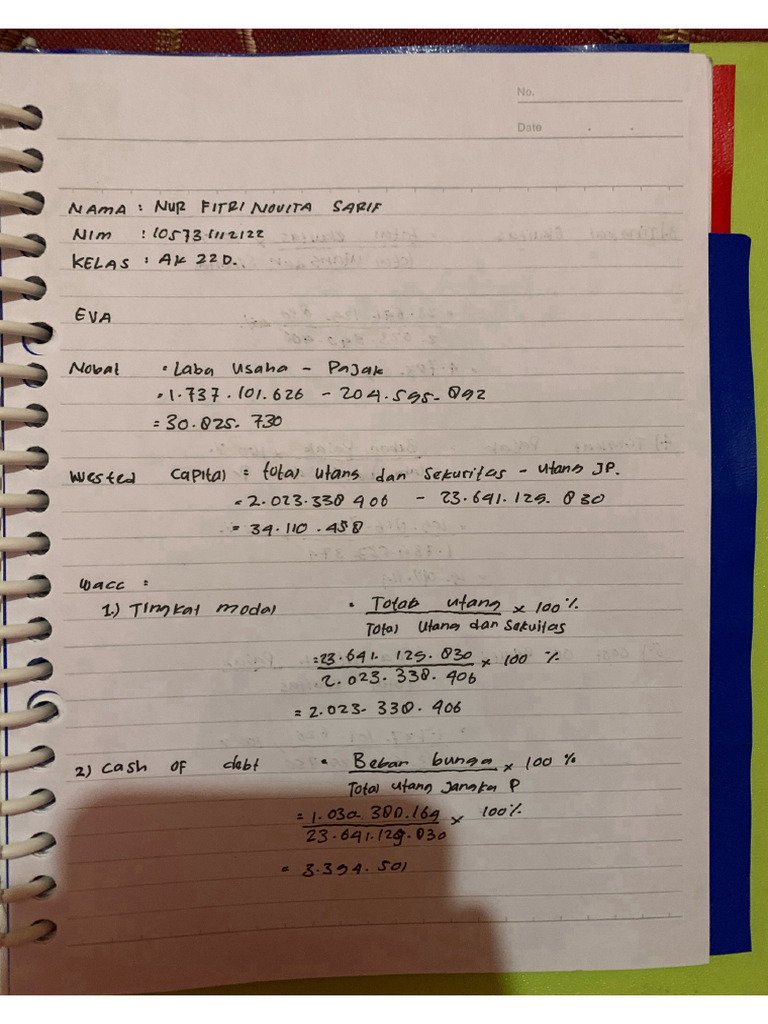 No.
Date
NAMA : NUR FITRI NOVITA SARIF
NIM : 105731112122
KELAS : AK 22D.
EVA
Nobat = Laba Usaha - Pajak
= 1.737.101.626 - 204.595.892
= 30.825.730
Wested Capital = total utang dan Sekuritas - Utang JP.
= 2.023.338 406 - 23.641.129.830
= 34.110.458
Wacc :
1.) Tingkat modal = Totab utang x 100 %
Total Utang dan Sekuitas
= 23.641.129.830 x 100 %
2.023.338.406
= 2.023.338.406
2) Cash of debt = Beban bunga x 100 %
Total utang Jangka P
= 1.030.380.169 x 100%
23.641.129.830
= 3.394.501